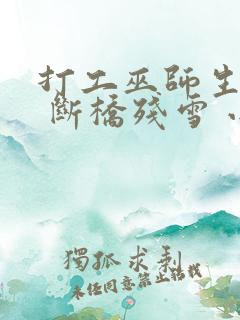 打工巫師生
斷橋殘雪
獨孤求剩
未任同意禁止轉載